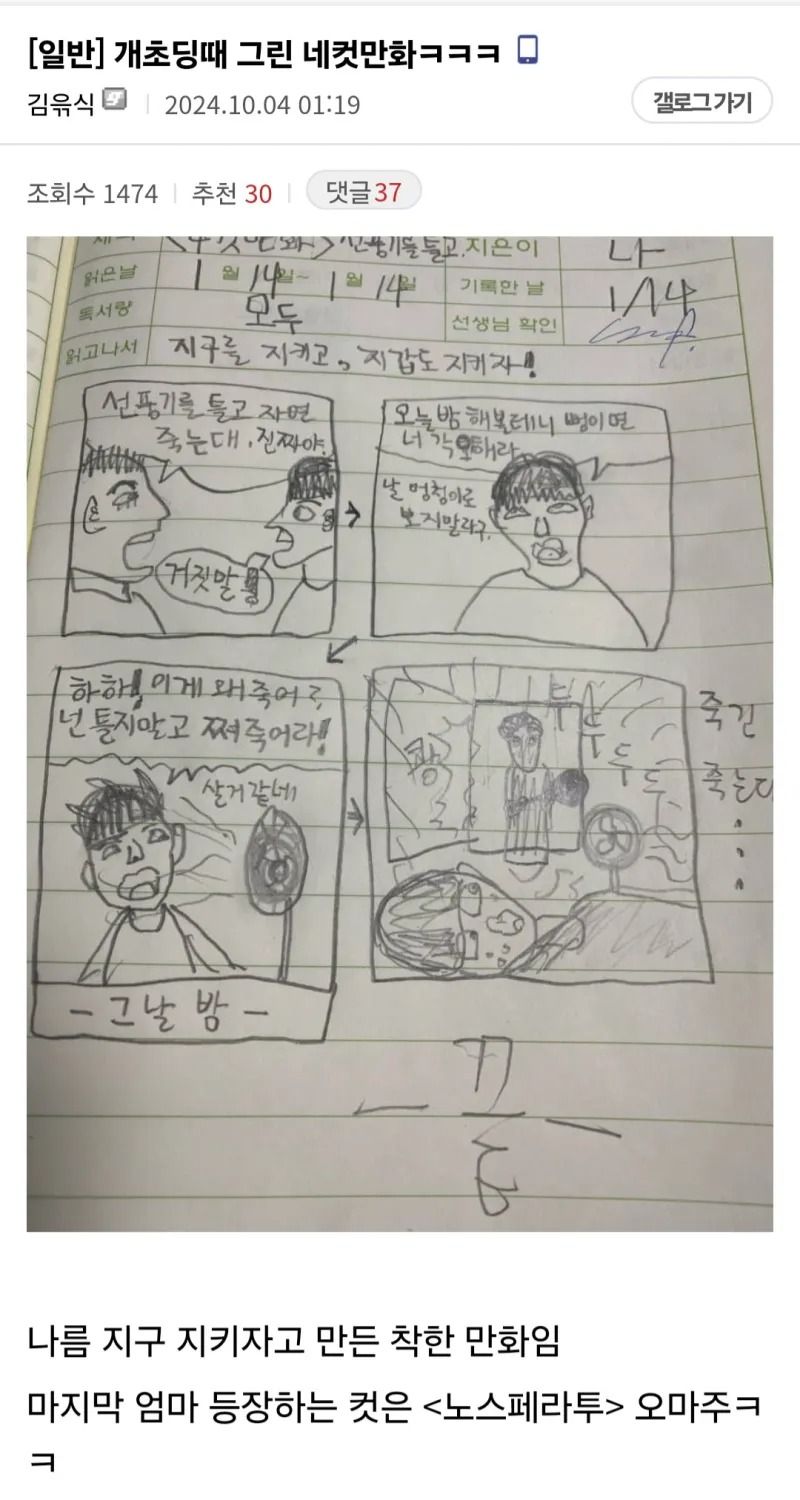 [일반] 개초딩때 그린 네컷만화ㅋㅋㅋ
김윾식
2024.10.04 01:19
갤로그 가기
조회수 1474
추천 30
댓글 37
<네컷만화> 선풍기를 틀고. 지은이 나
읽은날 1월 14일~ 1월 14일 기록한 날 1/14
독서량 모두 선생님 확인
읽고나서 지구를 지키고, 지갑도 지키자!
선풍기를 틀고 자면
죽는대, 진짜야.
거짓말!
오늘밤 해볼테니 뻥이면
너 각오해라
날 멍청이로
보지말라구.
하하! 이게 왜 죽어?
넌 틀지말고 쪄죽어라!
살거 같네
- 그날 밤 -
쾅
두
두
두
두
죽긴
죽는다
- 끝 -
나름 지구 지키자고 만든 착한 만화임
마지막 엄마 등장하는 컷은 <노스페라투> 오마주ㅋ
ㅋ